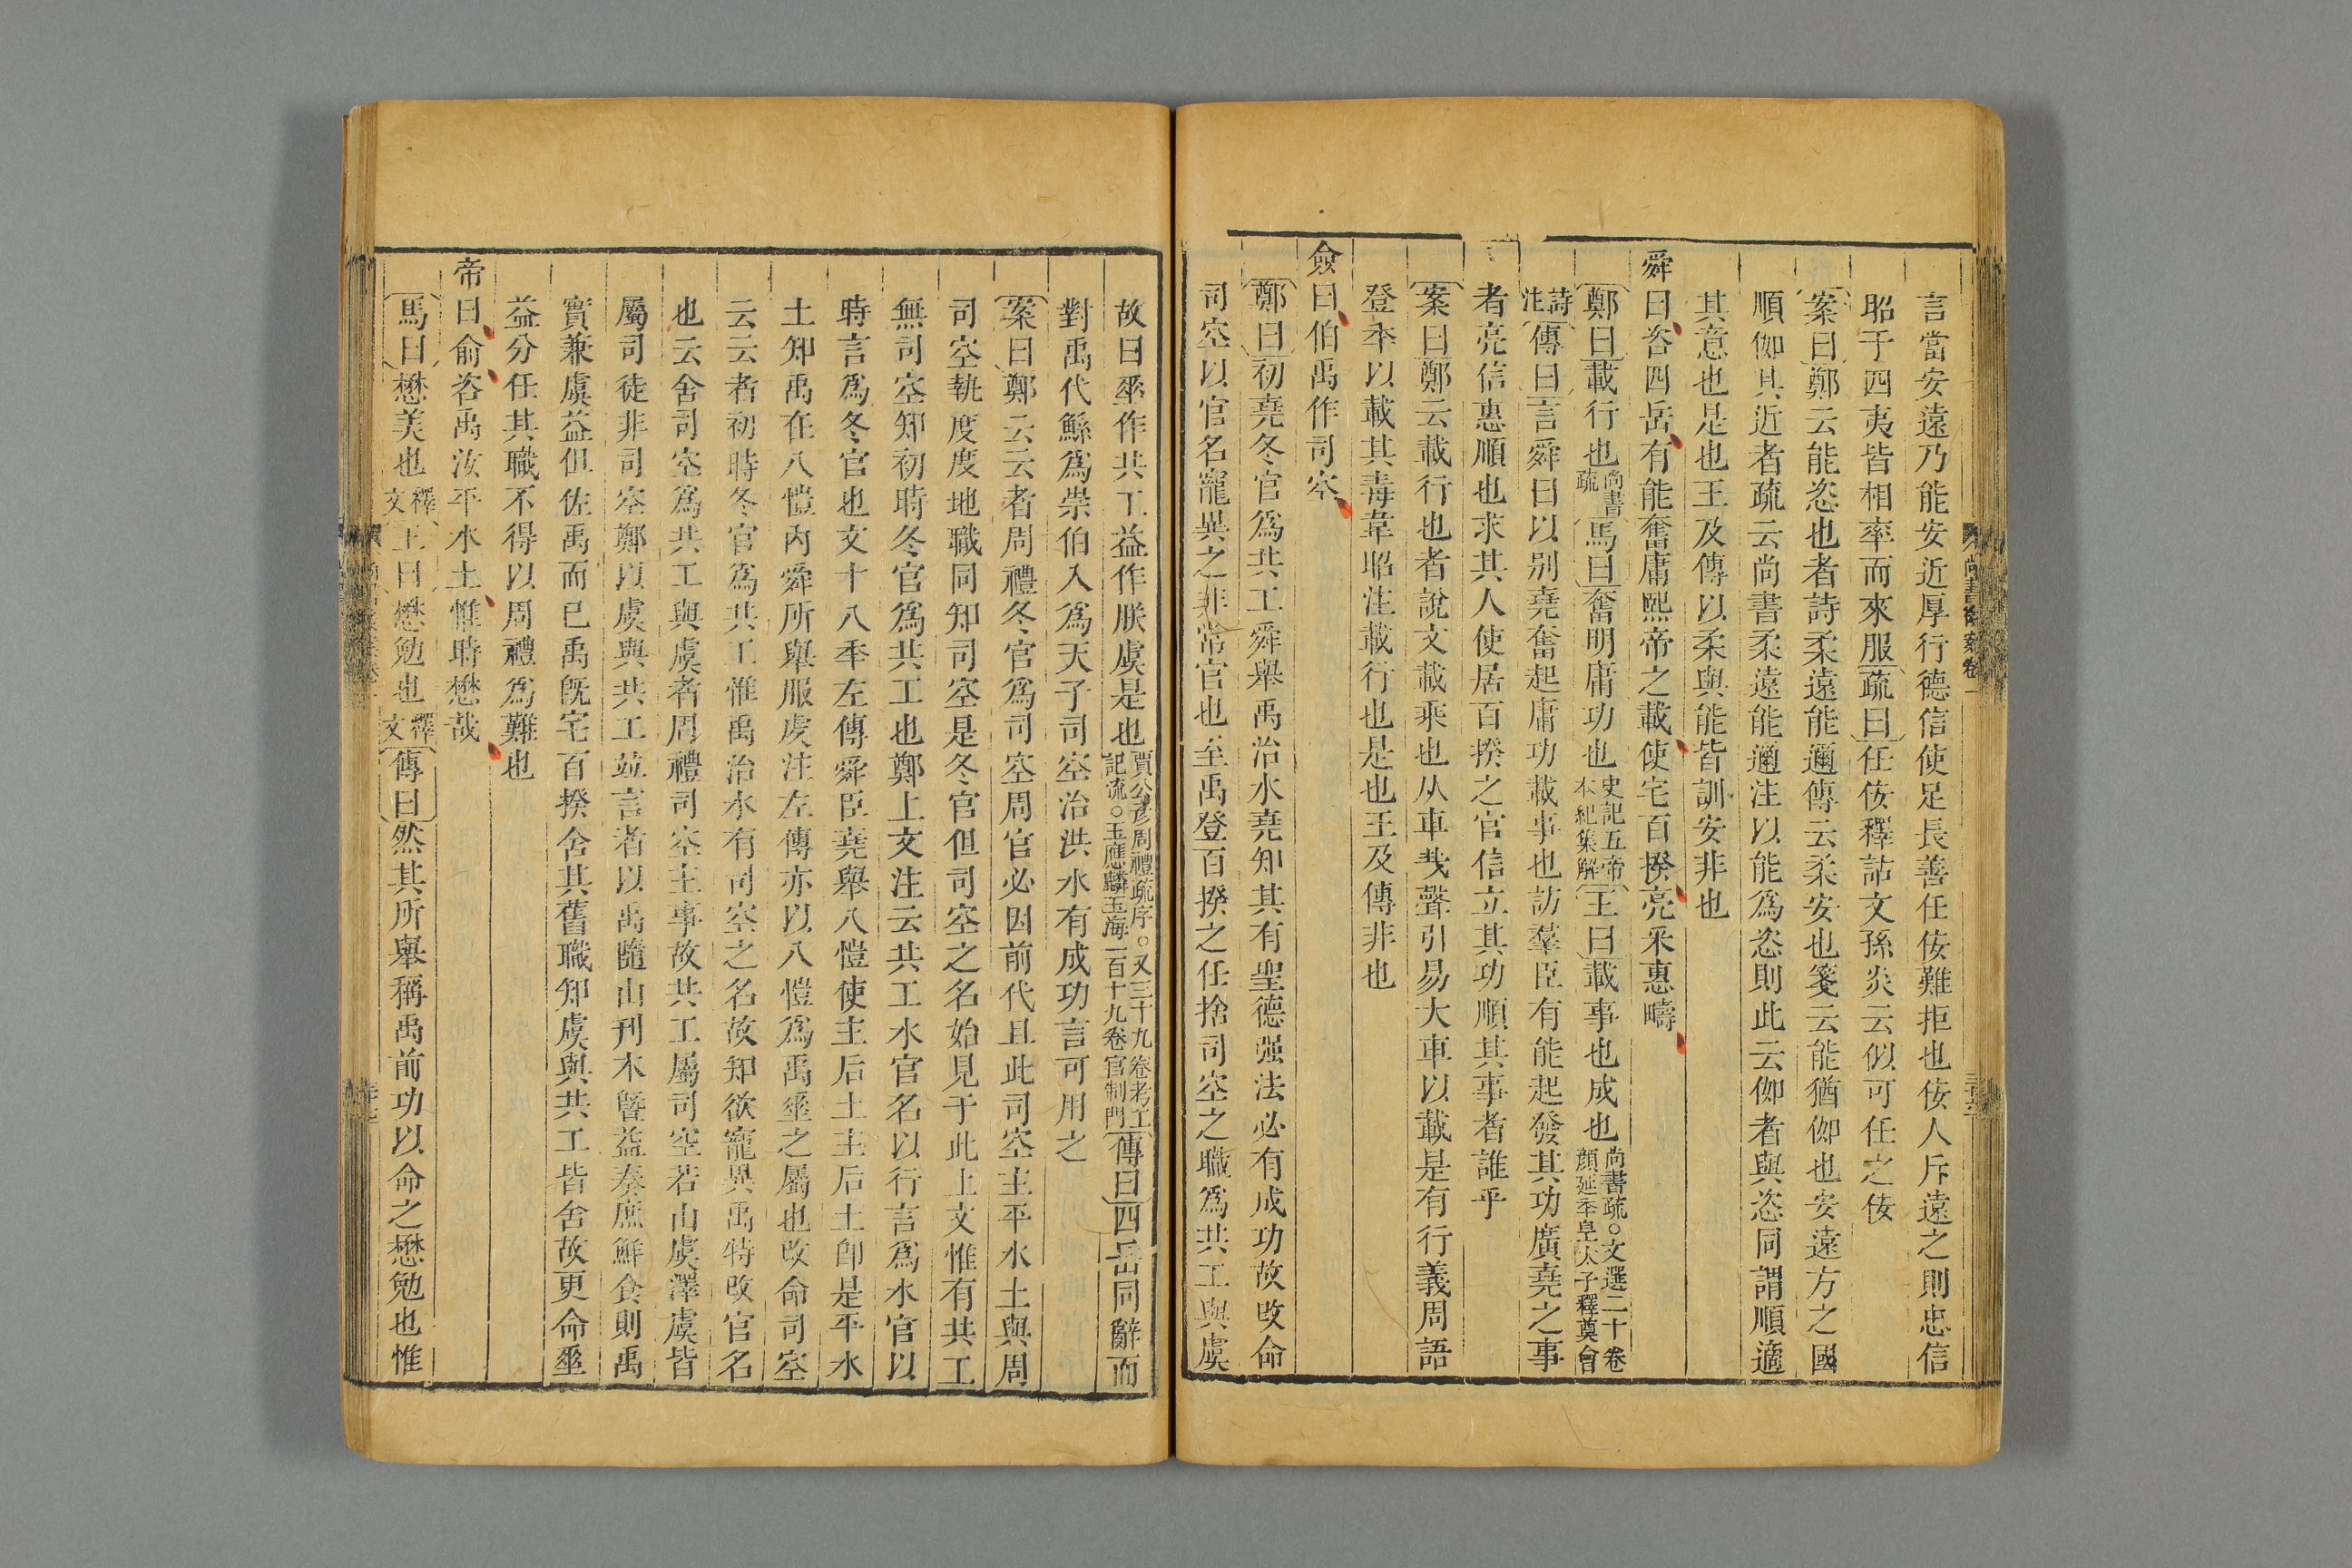 言當安遠乃能安近厚行德信使足長善任佞難拒也佞人斥遠之則忠信
昭于四夷皆相率而來服疏曰任佞釋詁文孫炎云似可任之佞
案曰鄭云能恣也者詩柔遠能邇傳云柔安也箋云能猶伽也安遠方之國
順伽其近者疏云尚書柔遠能邇注以能爲恣則此云伽者與恣同謂順適
其意也是也王及傳以柔與能皆訓安非也
舜曰咨四岳有能奮庸熙帝之載使宅百揆亮采惠疇
鄭曰載行也尚書疏馬曰奮明庸功也史記五帝本紀集解王曰載事也成也尚書疏○文選二十卷顏延秊皇太子釋奠會
詩注傳曰言舜曰以别堯奮起庸功載事也訪羣臣有能起發其功廣堯之事
者亮信惠順也求其人使居百揆之官信立其功順其事者誰乎
案曰鄭云載行也者說文載乘也从車𢦏聲引易大車以載是有行義周語
登秊以載其毒韋昭注載行也是也王及傳非也
僉曰伯禹作司空
鄭曰初堯冬官爲共工舜舉禹治水堯知其有聖德强法必有成功故改命
司空以官名寵異之非常官也至禹登百揆之任捨司空之職爲共工與虞
故曰𡍮作共工益作朕虞是也賈公彦周禮疏序○又三十九卷考工記流○王應麟玉海一百十九卷官制門傳曰四岳同辭而
對禹代鯀爲崇伯入爲天子司空治洪水有成功言可用之
案曰鄭云云者周禮冬官爲司空周官必因前代且此司空主平水土與周
司空執度度地職同知司空是冬官但司空之名始見于此上文惟有共工
無司空知初時冬官爲共工也鄭上文注云共工水官名以行言爲水官以
時言爲冬官也文十八秊左傳舜臣堯舉八愷使主后土主后土卽是平水
土知禹在八愷內舜所舉服虔注左傳亦以八愷爲禹𡍮之屬也改命司空
云云者初時冬官爲共工惟禹治水有司空之名故知欲寵異禹特改官名
也云舍司空爲共工與虞者周禮司空主事故共工屬司空若山虞澤虞皆
屬司徒非司空鄭以虞與共工竝言者以禹隨山刊木曁益奏庶鮮食則禹
實兼虞益但佐禹而已禹旣宅百揆舍其舊職知虞與共工皆舍故更命𡍮
益分任其職不得以周禮爲難也
帝曰俞咨禹汝平水土惟時懋哉
馬曰懋美也釋文王曰懋勉也釋文傳曰然其所舉稱禹前功以命之懋勉也惟